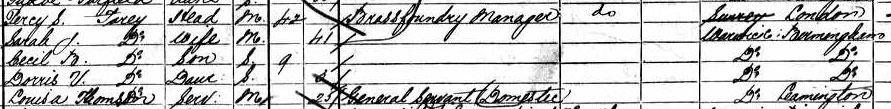 Percy S. Farey Head M. 42 Brassfoundry Manager do Surrey London
Sarah J. Do Wife M. 41 Warwick: Birmingham
Cecil B. Do Son S. 9 Do Do
Dorris V. Do Daur S. Do Do
Louisa Thomson Serv. M. 25 General Servant (Domestic Do Leamington